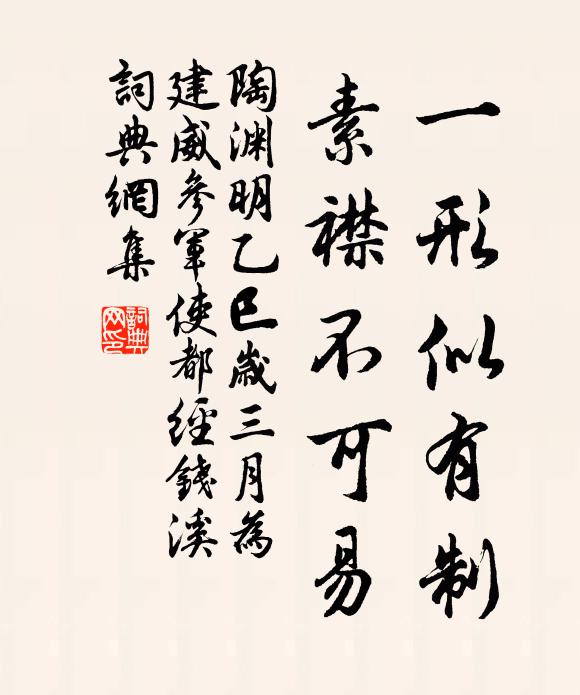 一形似有制
素襟不可易
陶渊明乙巳歲三月為
建威參軍使都經錢溪
詞典網集
詞典网印